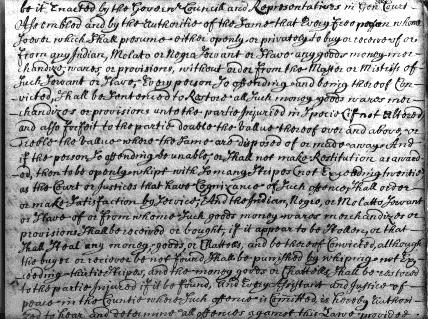 be it Enacted by the Govern.r Councill and Representatives in Gen Court
Assembled and by the Authoritie of the Same that Every free person whom
soever which shall presume either openly or privately to buy or receive of or
from any Indian, Molato or Negro servant or slave any goods money mer-
chandize wares, or provisions, without order from the Master or Mistriss of
such servant or slave, Every person so offending and being thereof Con-
victed, shall be Sentenced to Restore all such money goods wares mer-
chandizes or provisions unto the partie Injured in Specie (if not altered)
and also forfeit to the partie double the value thereof over and above, or
treble the value where the same are disposed of or made away. And
if the person so offending be unable, or shall not make Restitution as award-
ed, then to be openly whipt with so many stripes (not Exceeding twentie)
as the Court or Justices that have Cognizance of such offence shall order
or make Satisfaction by Service. And the Indian, Negro, or Molatto servant
or slave of or from whome such goods money wares merchandizes or
provisions shall be received or bought, if it appear to be stolen, or that
shall steal any money, goods, or Chattells, and be thereof Convicted, although
the buyer or reciever be not found, shall be punished by whiping not Ex-
ceeding thirtie stripes, and the money goods or Chattells shall be restored
to the partie Injured if it be found, and Every Assistant and Justice of
peace in the Countie where such offence is Comitted, is hereby authori-
zed to hear and determine all offences against this Law provided